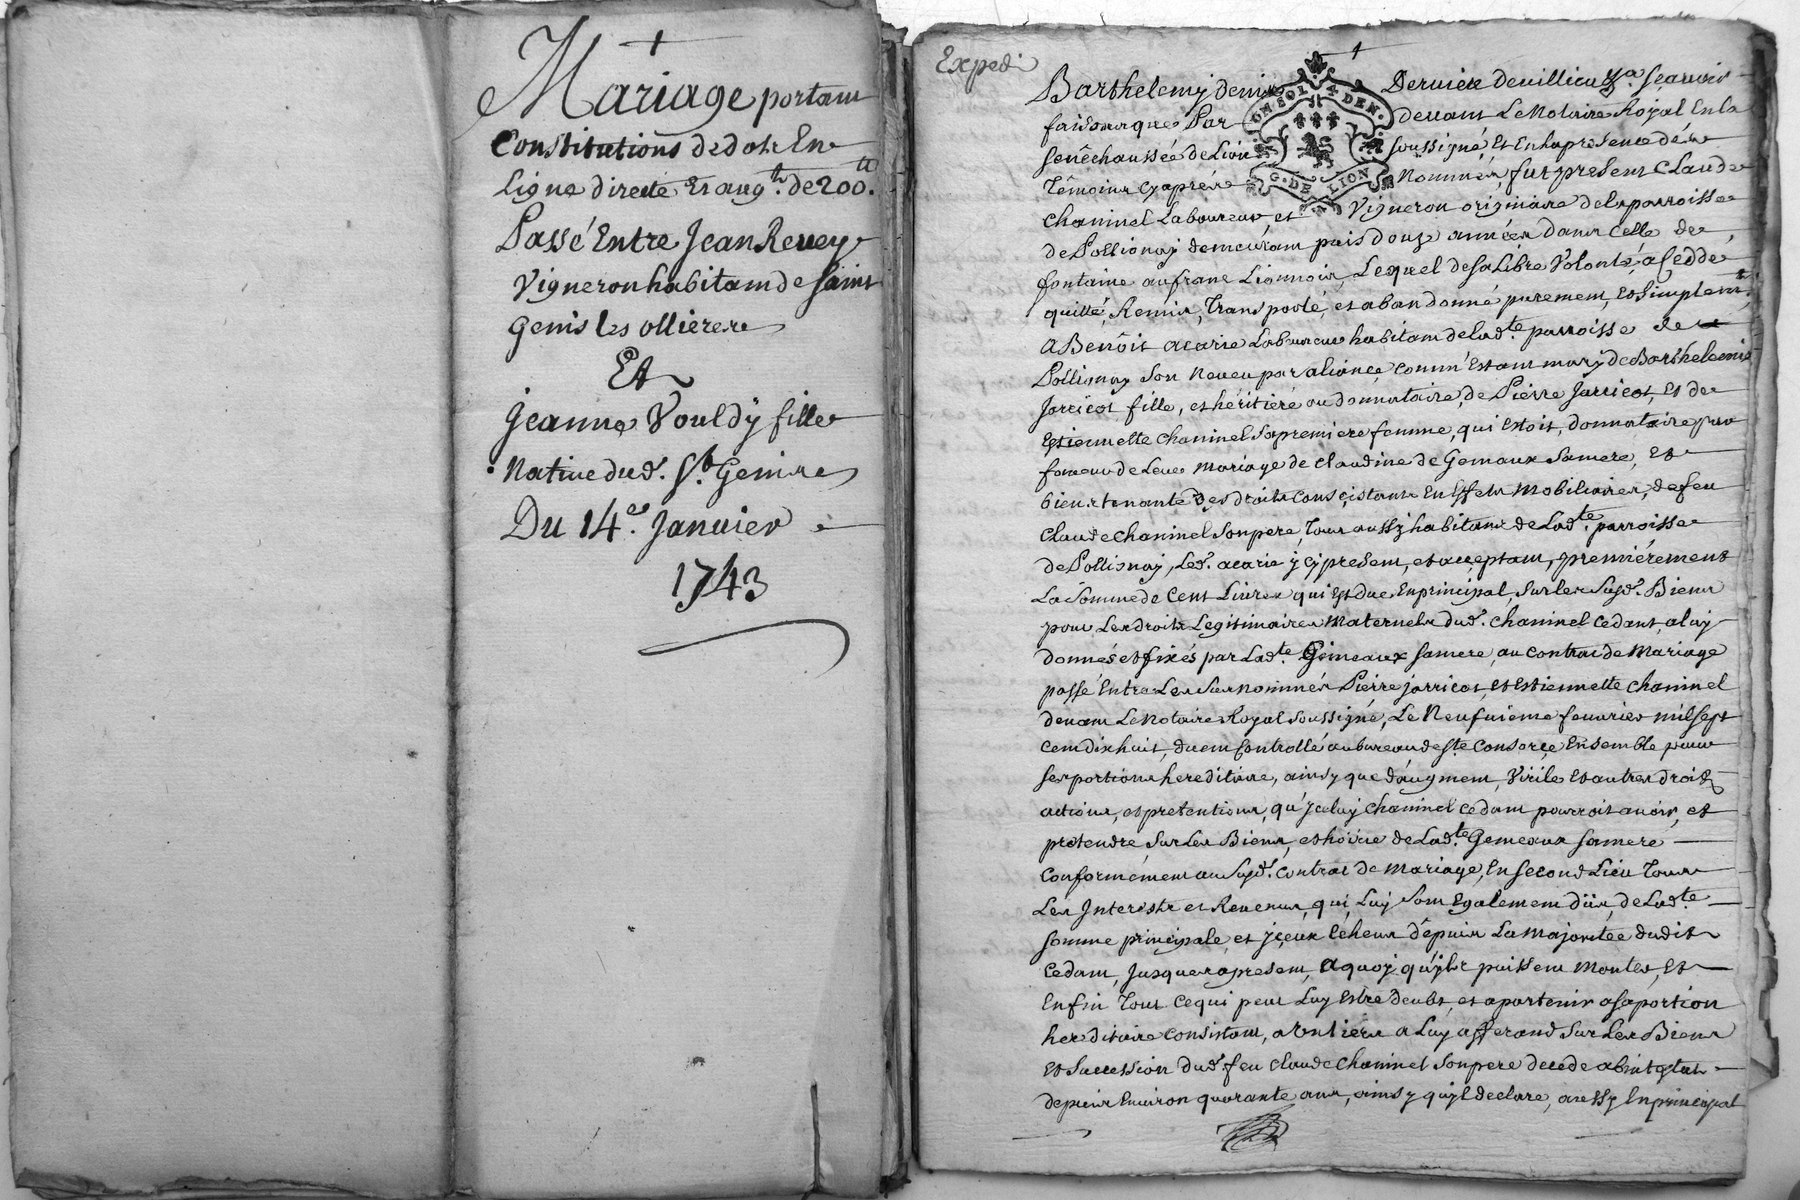 Mariage portant
Constitutions de dote En
Ligne directe Et augt. de 200tt.
Passé Entre Jean Revey
Vigneron habitant de saint
Genis les ollieres
Et
Jeanne Vouldÿ fille
Native dud. St. Genis
Du 14e. Janvier
1743
Expedi
Barthelemy Deni Derviere Devillieu Sçavoir
faisons que Par devant Le Notaire Royal En la
ON SOL 4 DEN.
G. DE LION
senêchaussée de Lion soussigné Et En la presence dés
Témoins cy après Nommés, fut present Claude
chaninel Laboureur et Vigneron originaire de la parroisse
de Pollionay demeurant puis douze années dans Celle de
fontaine au franc Lionnois, Lequel de sa Libre Volonté, a Cedé
quitté, Remis, Transporté, et abandonné purement, et simplemt.
A Benôit acarie Laboureur habitant de Ladte. parroisse de
Pollionay son neveu par aliance comm'Estant mary de Barthelemie
Jarricot fille, et héritiére ou donnataire, de Pierre Jarricot, Et de
Estiennette chaninel sa premiere femme, qui Estoit, donnataire par
faveur de Leur mariage de claudine de Gemaux sa mere, Et
bien tenante des droits consistants En Effets mobiliaires, de feu
Claude chaninel son pere, Tous aussy habitans de Ladte. parroisse
de Pollionay, Led. acarie ycy present, et acceptant, premiérement
La somme de Cent Livres qui Est due En principal, sur les susd. Biens
pour Les droits Legitimaires Maternels dud. Chaninel Cedant, a luy
donnés et fixés par Ladte. Gemeaux sa mere, au contrat de Mariage
passé Entre Les surnommés Pierre jarricot, et Estiennette Chaninel
devant Le Notaire Royal soussigné, Le Neufuieme fevrier mil sept
cent dix huit, duemt Controllé au bureau de ste Consorce Ensemble pour
ses portions hereditaire, ainsy que d'augment, Virile Et autres droits
actions, et pretentions, qu'jceluy Chaninel Cedant pourroit avoir, et
pretendre sur Les Biens, et hoirie de Ladte. Gemeaux sa mere
Conformément au susd. Contrat de Mariage, En second Lieu Tous
Les Interests et Revenus, qui, Luy sont Egalement düs, de Ladte.
somme principale, et jceux écheus dépuis La Majoritée dudit
Cedant, Jusques a present, a quoy qu'yls puissent monter, Et
Enfin Tout Ce qui peut Luy Estre deubt, et apartenir a sa portion
hereditaire Consistant, a Luy afferand sur Les Biens
Et succession dud. feu Claude Chaninel son pere decede abintestat
depuis Environ quarante ans, ainsy qu'yl declare, aussy En principal